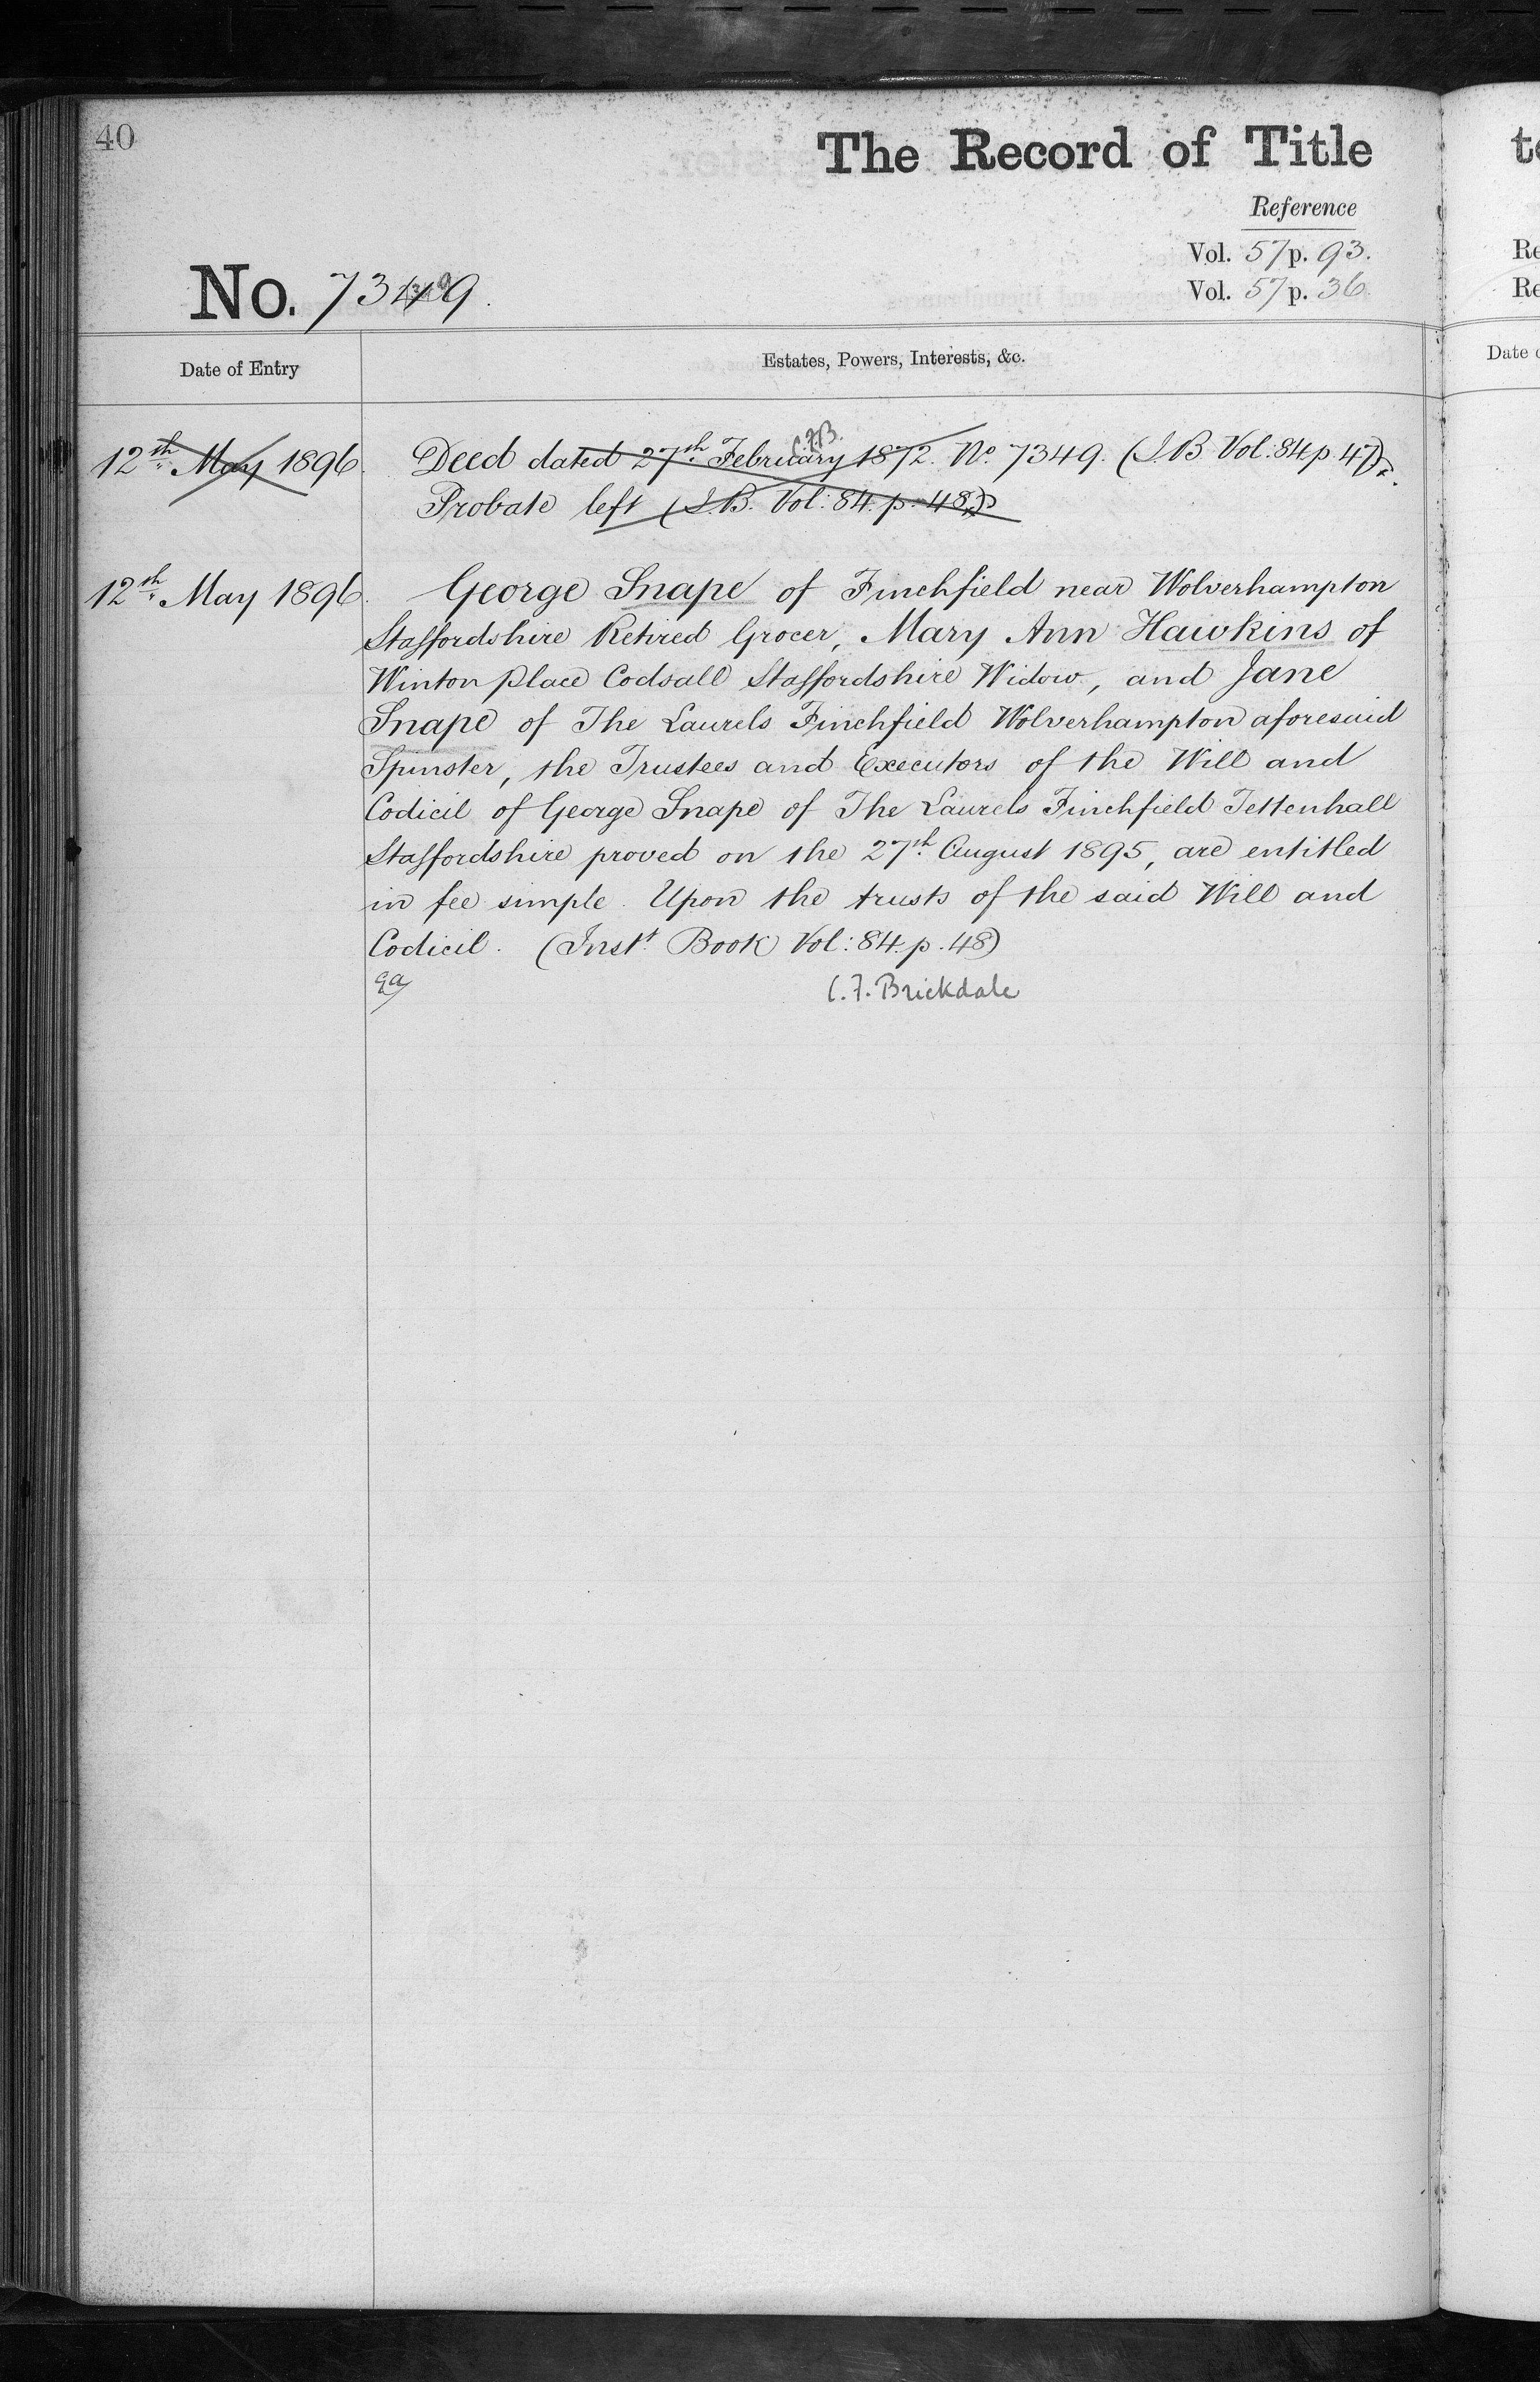 40
The Record of Title
Reference
Vol. 57 p. 93.
Vol. 57 p. 36
No. 7349.
Date of Entry
Estates, Powers, Interests, &c.
C.F.B.
12th May 1896. Deed dated 27th February 1872. No. 7349. (I.B Vol: 84 p 47)
Probate left (I.B. Vol: 84. p. 48)
12th May 1896. George Snape of Finchfield near Wolverhampton
Staffordshire Retired Grocer, Mary Ann Hawkins of
Winton place Codsall Staffordshire Widow, and Jane
Snape of The Laurels Finchfield Wolverhampton aforesaid
Spinster, the Trustees and Executors of the Will and
Codicil of George Snape of The Laurels Finchfield Tettenhall
Staffordshire proved on the 27th August 1895, are entitled
in fee simple. Upon the trusts of the said Will and
Codicil. (Instt Book Vol: 84. p. 48)
C.F. Brickdale
to
Re
Re
Date o